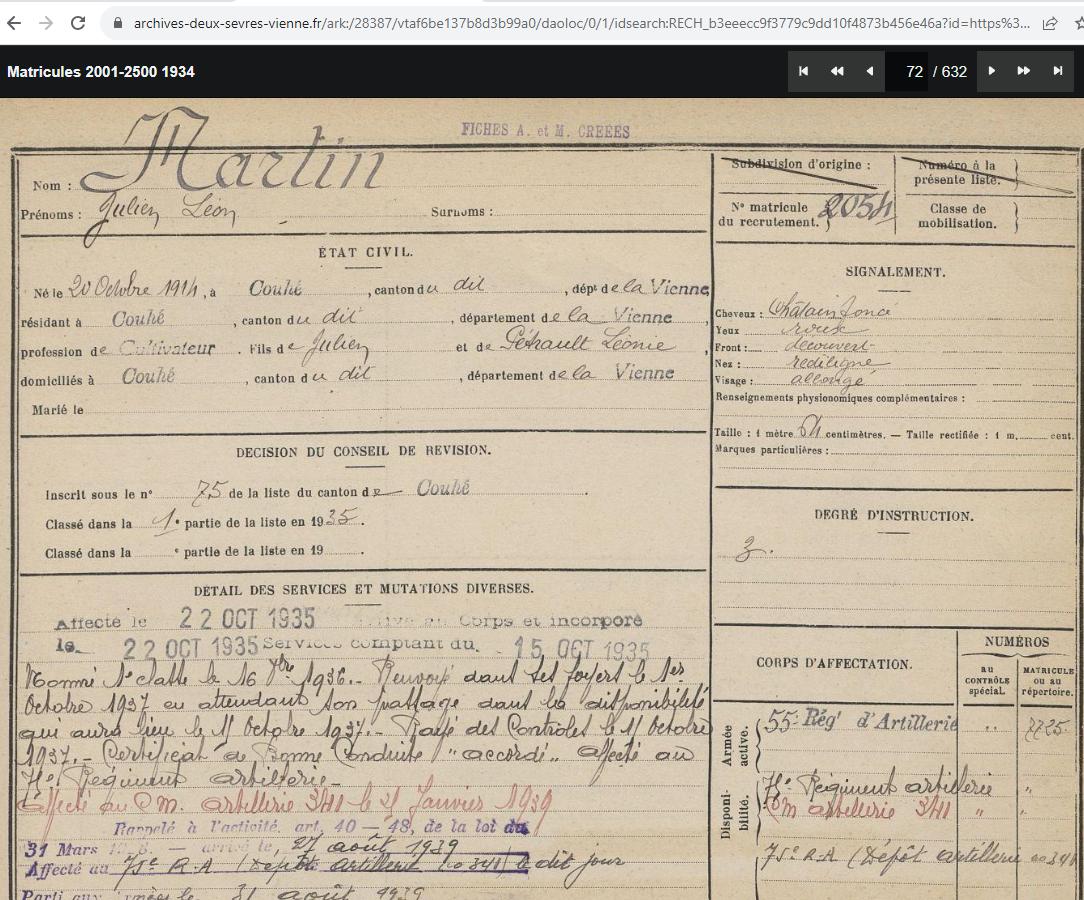 archives-deux-sevres-vienne.fr/ark:/28387/vtaf6be137b8d3b99a0/daoloc/0/1/idsearch:RECH_b3eeecc9f3779c9dd10f4873b456e46a?id=https%3...
Matricules 2001-2500 1934
72 / 632
FICHES A. et M. CREEES
Nom : Martin
Prénoms : Julien Léon Surnoms :
Subdivision d'origine :
Numéro à la présente liste.
N° matricule du recrutement. 2054
Classe de mobilisation.
ÉTAT CIVIL.
Né le 20 Octobre 1914, à Couhé, canton du dit, dépt de la Vienne,
résidant à Couhé, canton du dit, département de la Vienne,
profession de Cultivateur. Fils de Julien et de Léonie,
domiciliés à Couhé, canton du dit, département de la Vienne
Marié le
SIGNALEMENT.
Cheveux : Châtain foncé
Yeux roux
Front : découvert
Nez : rectiligne
Visage : allongé
Renseignements physionomiques complémentaires :
Taille : 1 mètre 64 centimètres. — Taille rectifiée : 1 m. cent.
Marques particulières :
DECISION DU CONSEIL DE REVISION.
Inscrit sous le n° 75 de la liste du canton de Couhé.
Classé dans la 1e partie de la liste en 1935.
Classé dans la e partie de la liste en 19 .
DEGRÉ D'INSTRUCTION.
3.
DÉTAIL DES SERVICES ET MUTATIONS DIVERSES.
Affecté le 22 OCT 1935 Arrivé au Corps et incorporé
le 22 OCT 1935 Services comptant du 15 OCT 1935
Nommé 1e classe le 16 7bre 1936.- Renvoyé dans ses foyers le 1er
Octobre 1937 en attendant son passage dans la disponibilité
qui aura lieu le 15 Octobre 1937.- Rayé des Contrôles le 15 Octobre
1937.- Certificat de Bonne Conduite "accordé" affecté au
Régiment artillerie-
affecté au C.m. artillerie 341 le 21 Janvier 1939
Rappelé à l'activité, art. 40 — 48, de la loi du
31 Mars arrivé le, 27 août 1939
Affecté au 75e R.A (Dépôt artillerie no 341) le dit jour
Parti aux armées le 31 août 1939
CORPS D'AFFECTATION.
NUMÉROS
au CONTRÔLE spécial.
MATRICULE ou au répertoire.
Armée active.
55e Rég' d'Artillerie " 7725
Disponibilité.
Régiment artillerie "
Cm artillerie 341 " "
75e R.A (Dépôt artillerie no 341